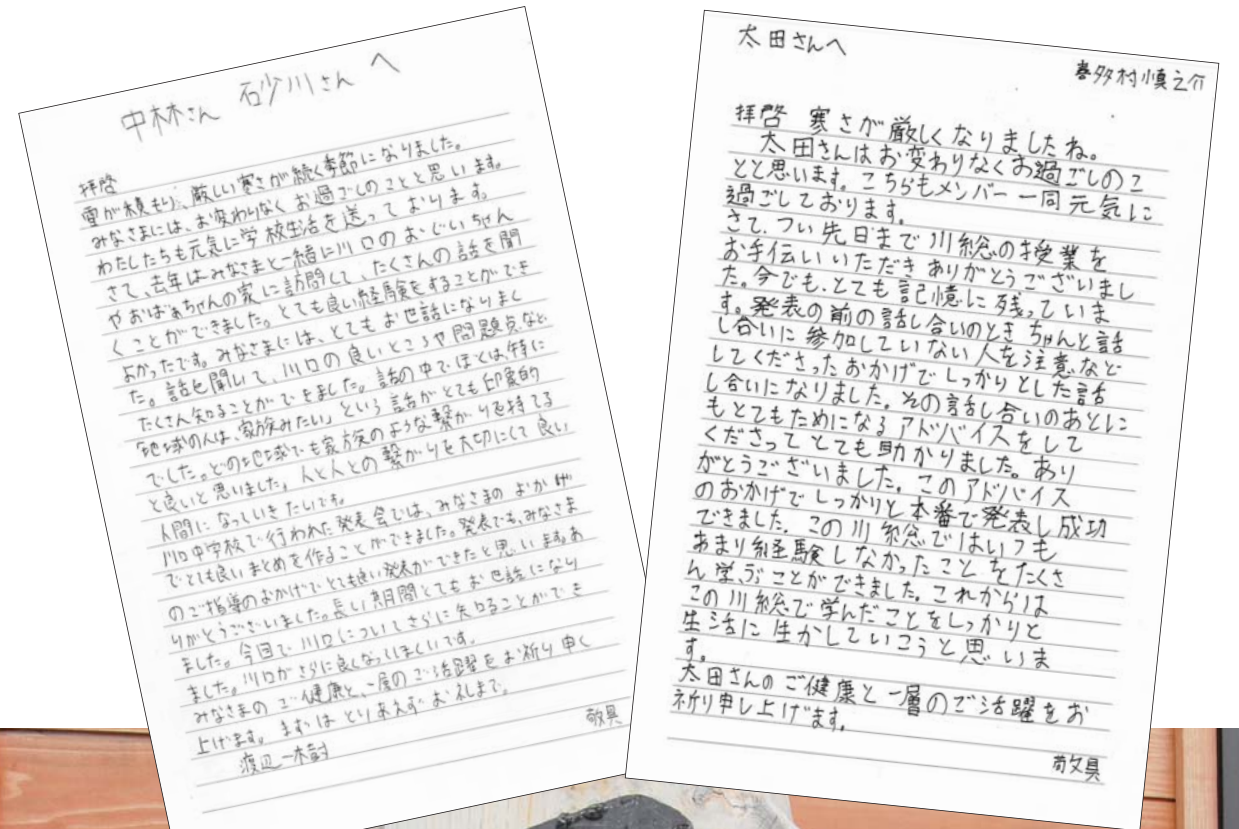 中林さん 石少川さんへ
拝啓
雪が積もり、厳しい寒さが続く季節になりました。
みなさまには、お変わりなくお過ごしのことと思います。
わたしたちも元気に学校生活を送っております。
さて、去年はみなさまと一緒に川口のおじいちゃん
やおばあちゃんの家に訪問して、たくさんの話を聞
くことができました。とても良い経験をすることができ
よかったです。みなさまには、とてもお世話になりまし
た。話を聞いて、川口の良いところや問題点など
たくさん知ることができました。話の中でぼくは、特に
「地域の人は、家族みたい」という話がとても印象的
でした。どの地域でも家族のような繋がりを持てる
と良いと思いました。人と人との繋がりを大切にして良い
人間になっていきたいです。
川口中学校で行われた発表会では、みなさまのおかげ
でとても良いまとめを作ることができました。発表でも、みなさま
のご指導のおかげでとても良い発表ができたと思います。あ
りがとうございました。長い期間とてもお世話になり
ました。今回で川口についてさらに知ることができ
ました。川口がさらに良くなってほしいです。
みなさまのご健康と、一層のご活躍をお祈り申し
上げます。まずはとりあえずお礼まで。
敬具
渡辺一樹
太田さんへ
喜多村慎之介
拝啓 寒さが厳しくなりましたね。
太田さんはお変わりなくお過ごしのこ
とと思います。こちらもメンバー一同元気に
過ごしております。
さて、つい先日まで川総の授業を
お手伝いいただきありがとうございまし
た。今でも、とても記憶に残っていま
す。発表の前の話し合いのときちゃんと話
し合いに参加していない人を注意など
してくださったおかげでしっかりとした話
し合いになりました。その話し合いのあとに
もとてもためになるアドバイスをして
くださってとても助かりました。あり
がとうございました。このアドバイス
のおかげでしっかりと本番で発表し成功
できました。この川総ではいつも
あまり経験しなかったことをたくさ
ん学ぶことができました。これからは
この川総で学んだことをしっかりと
生活に生かしていこうと思いま
す。
太田さんのご健康と一層のご活躍をお
祈り申し上げます。
敬具